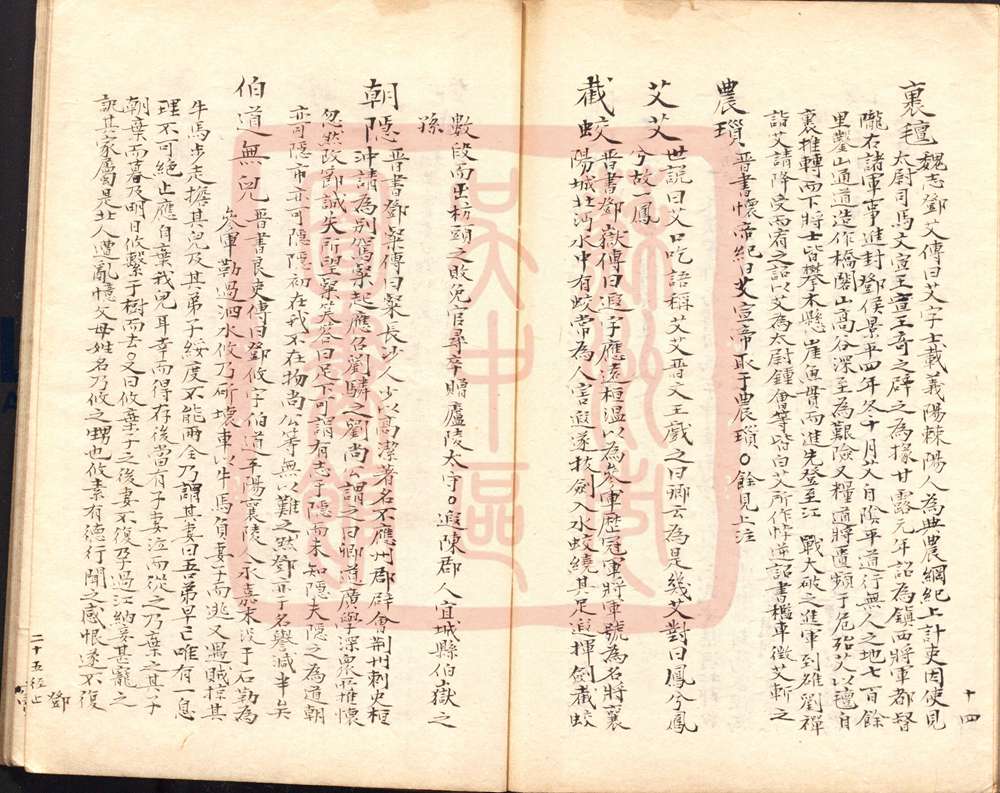 裹氊 魏志鄧艾傳曰艾字士載義陽棘陽人為典農綱紀上計吏因使見
太尉司馬文宣王宣王奇之辟之為掾甘露元年詔為鎮西將軍都督
隴右諸軍事進封鄧侯景平四年冬十月艾自陰平道行無人之地七百餘
里鑿山通道造作橋閣山高谷深至為艱險又糧道將匱頻于危殆艾以氊自
裹推轉而下將士皆攀木懸崖魚貫而進先登至江 戰大破之進軍到雒劉禪
詣艾請降受而宥之詔以艾為太尉鍾會等皆白艾所作悖逆詔書檻車徵艾斬之
農瑣 晉書懷帝紀曰艾宣帝取于農瑣○餘見上注
艾艾 世說曰艾口吃語稱艾艾晉文王戲之曰卿云為是幾艾對曰鳳兮鳳
兮故一鳳
截蛟 晉書鄧嶽傳曰遐字應遠桓溫以為參軍歷冠軍將軍號為名將襄
陽城北沔水中有蛟常為人害遐遂拔劍入水蛟繞其足遐揮劍截蛟
數段而出枋頭之敗免官尋卒贈廬陵太守○遐陳郡人宜城縣伯嶽之
孫
朝隱 晉書鄧粲傳曰粲長沙人少以高潔著名不應州郡辟會荊州刺史桓
沖請為別駕粲起應召劉驎之劉尚公謂之曰卿道廣學深眾所推懷
忽然改節誠失所望粲笑答曰足下可謂有志于隱而未知隱夫隱之為道朝
亦可隱市亦可隱隱初在我不在物尚公等無以難之然鄧亦于名譽減半矣
伯道無兒 晉書良吏傳曰鄧攸字伯道平陽襄陵人永嘉末沒于石勒為
參軍勒過泗水攸乃斫壞車以牛馬負妻子而逃又遇賊掠其
牛馬步走擔其兒及其弟子綏度不能兩全乃謂其妻曰吾弟早亡唯有一息
理不可絕止應自棄我兒耳幸而得存後當有子妻泣而從之乃棄之其子
朝棄而暮及明日攸繫于樹而去○又曰攸棄子之後妻不復孕過江納妾甚寵之
訊其家屬是北人遭亂憶父母姓名乃攸之甥也攸素有德行聞之感恨遂不復
十四
二十五徑上
鄧